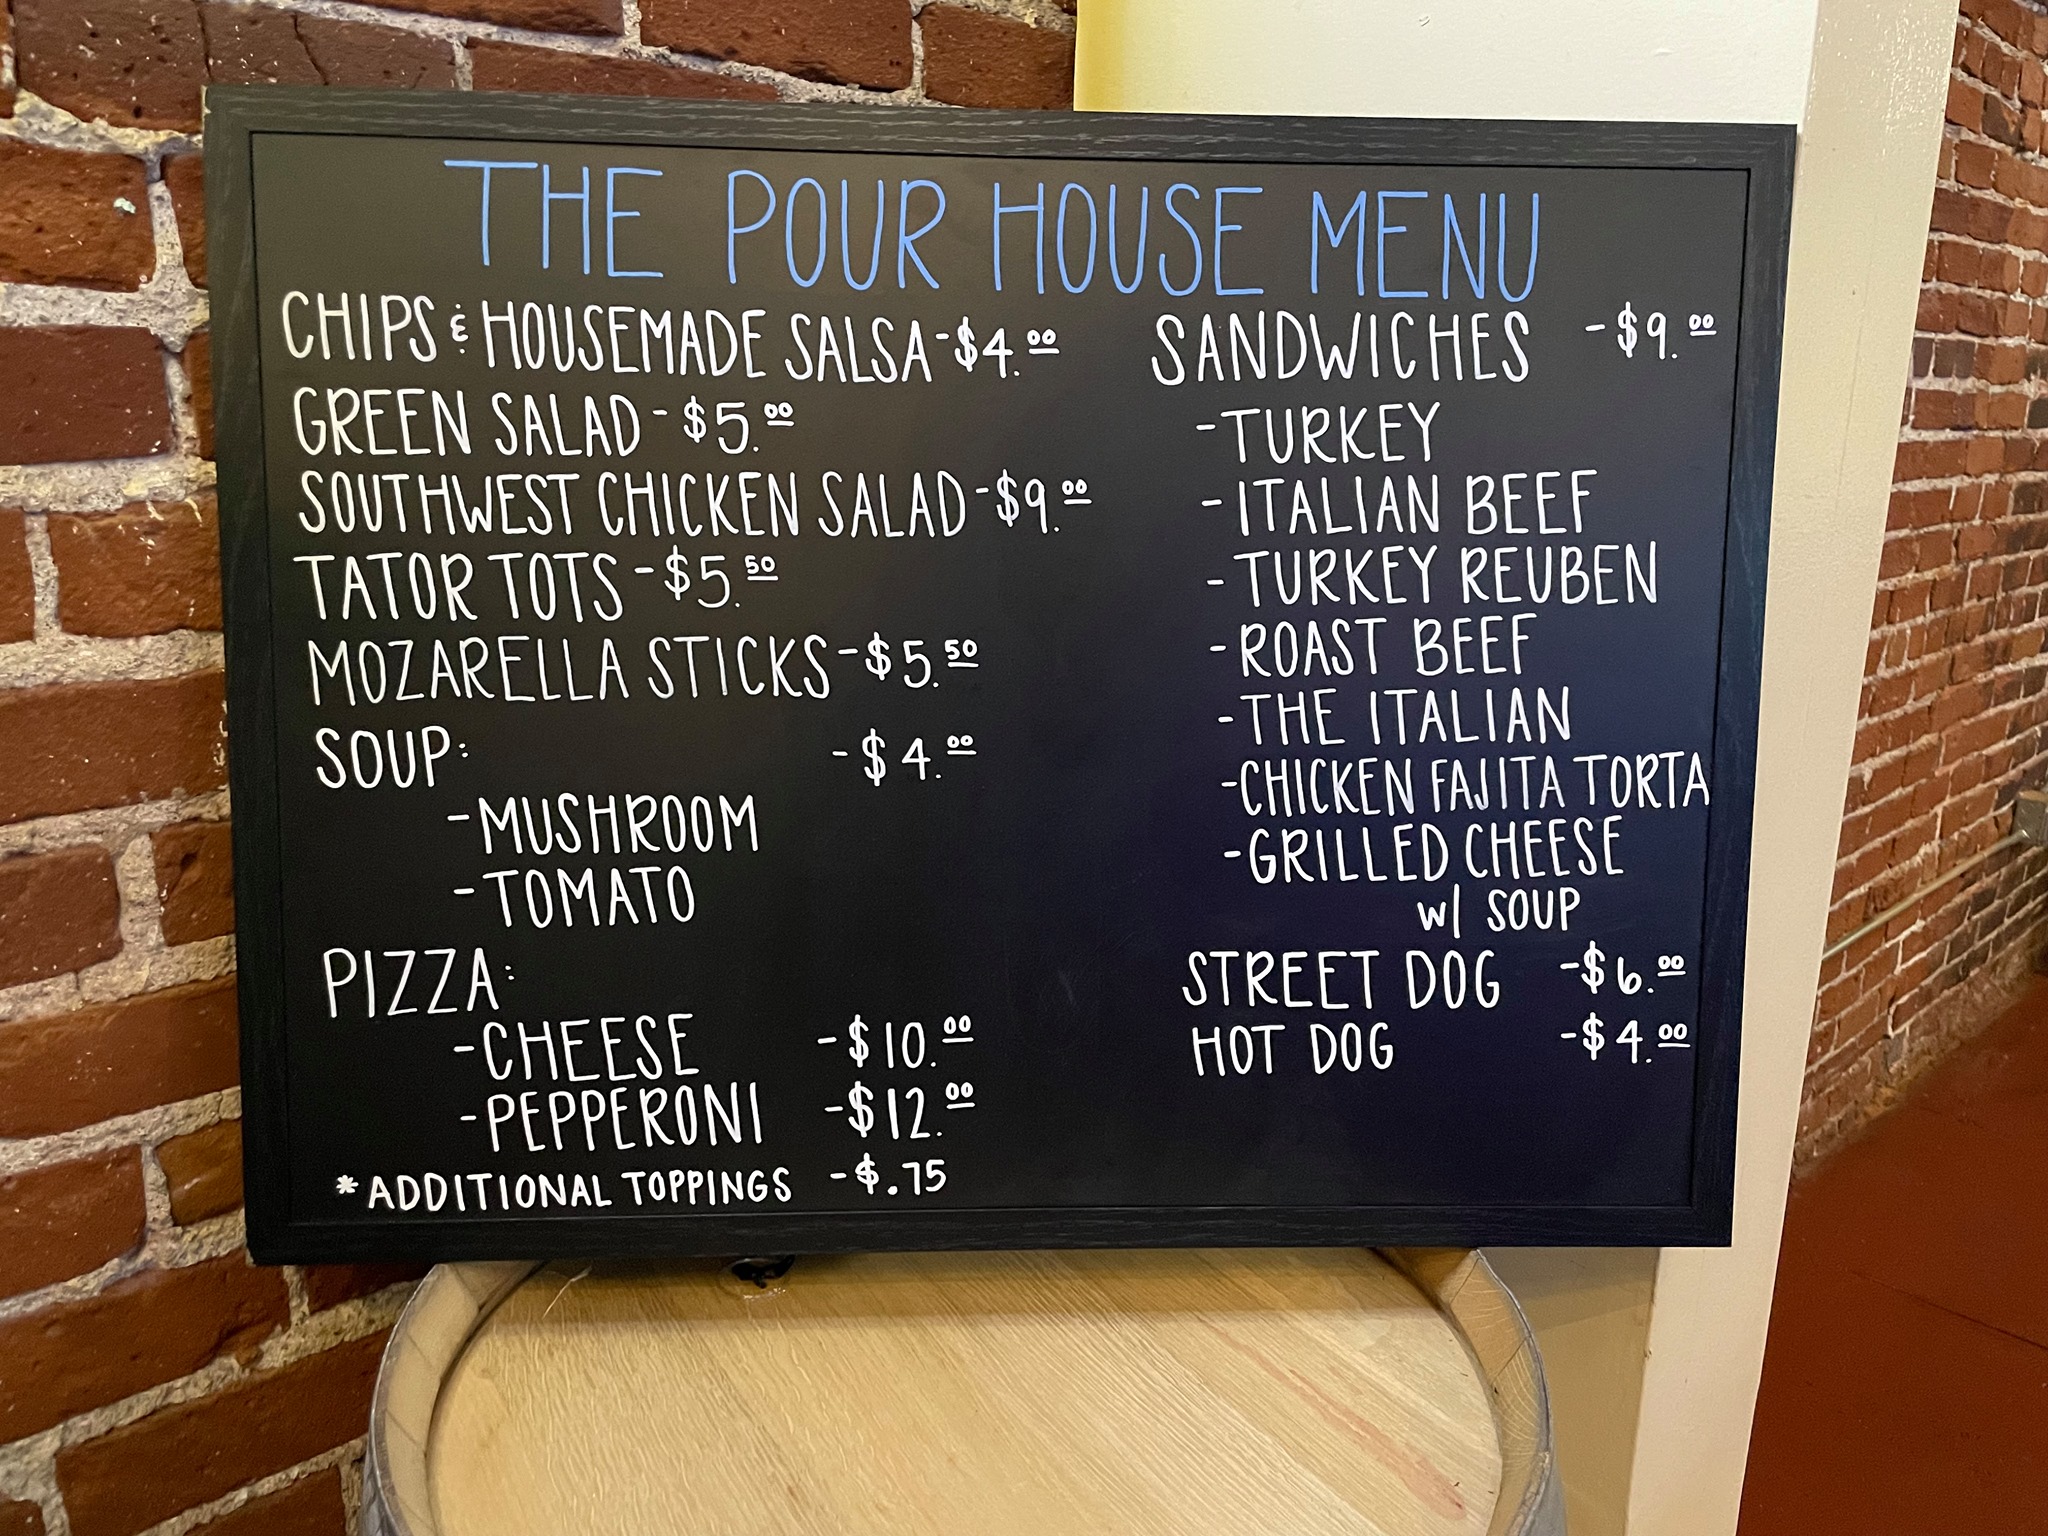 THE POUR HOUSE MENU
CHIPS & HOUSEMADE SALSA - $4.00
GREEN SALAD - $5.00
SOUTHWEST CHICKEN SALAD - $9.00
TATOR TOTS - $5.50
MOZARELLA STICKS - $5.50
SOUP: - $4.00
- MUSHROOM
- TOMATO
PIZZA:
- CHEESE - $10.00
- PEPPERONI - $12.00
* ADDITIONAL TOPPINGS - $.75
SANDWICHES - $9.00
- TURKEY
- ITALIAN BEEF
- TURKEY REUBEN
- ROAST BEEF
- THE ITALIAN
- CHICKEN FAJITA TORTA
- GRILLED CHEESE
w/ SOUP
STREET DOG - $6.00
HOT DOG - $4.00